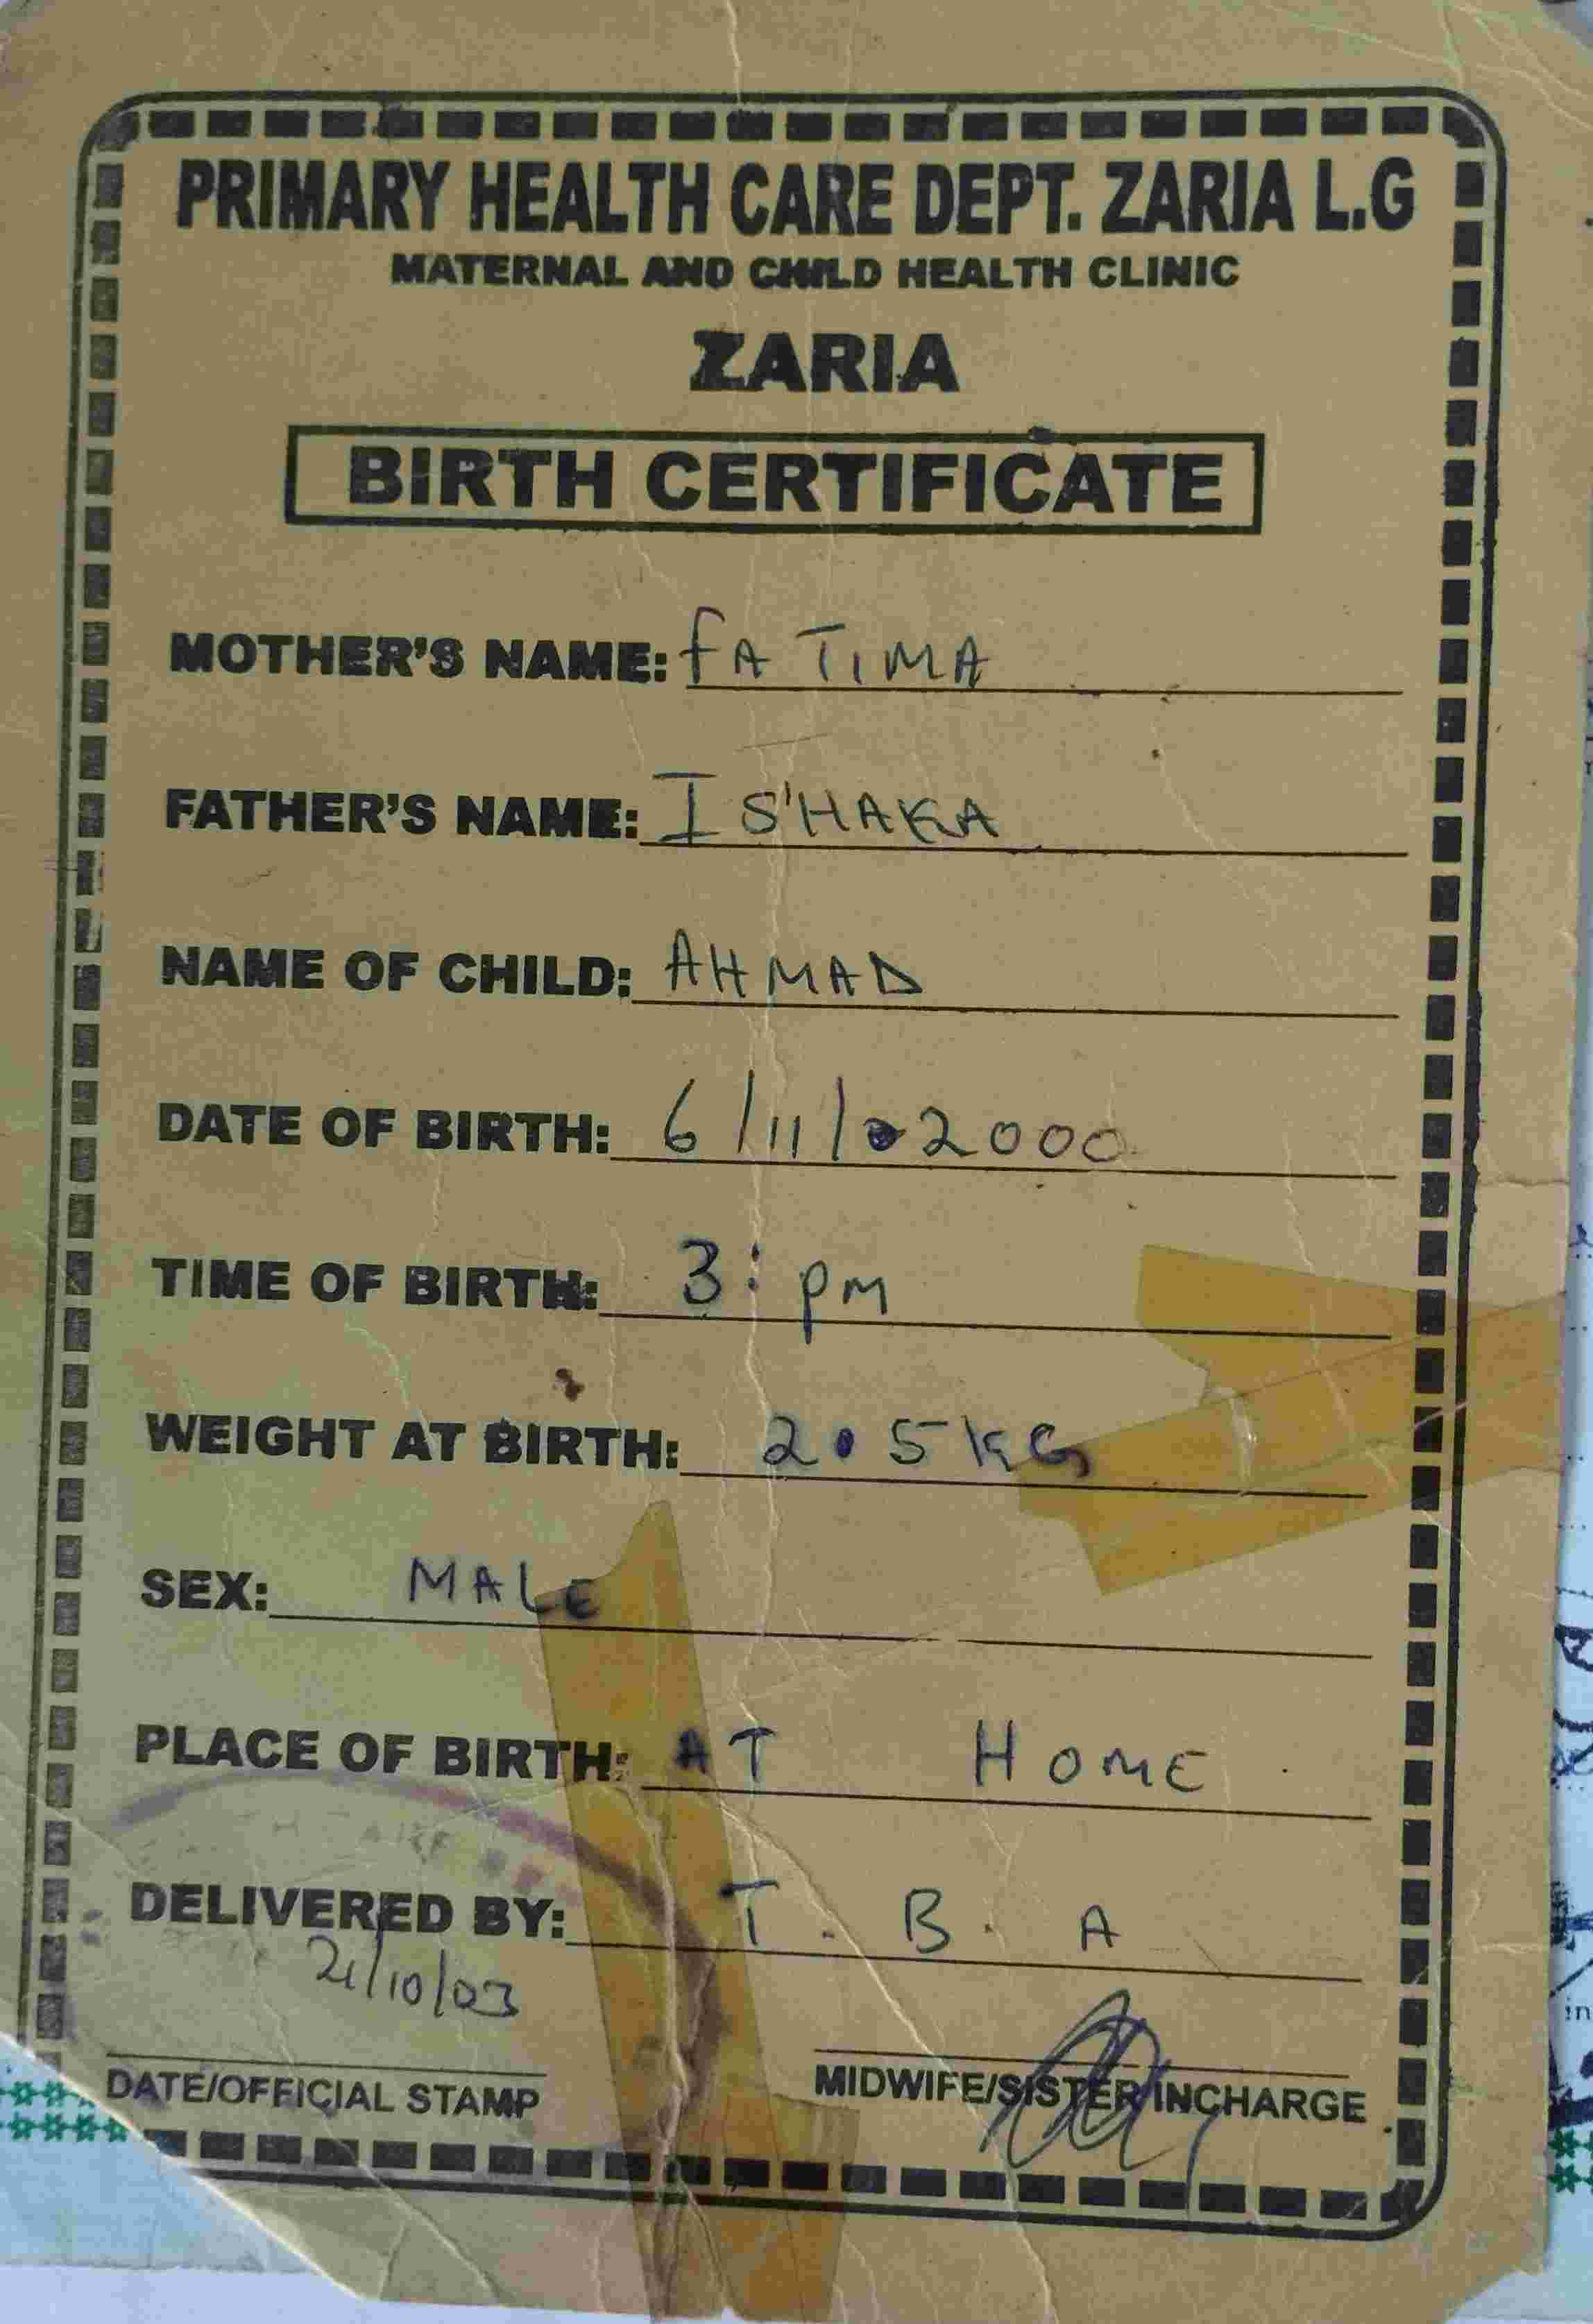 PRIMARY HEALTH CARE DEPT. ZARIA L.G
MATERNAL AND CHILD HEALTH CLINIC
ZARIA
BIRTH CERTIFICATE
MOTHER'S NAME: FATIMA
FATHER'S NAME: IS'HAKA
NAME OF CHILD: AHMAD
DATE OF BIRTH: 6/11/2000
TIME OF BIRTH: 3: pm
WEIGHT AT BIRTH: 2.5KG
SEX: MALE
PLACE OF BIRTH: AT HOME
DELIVERED BY: T. B. A
21/10/03
DATE/OFFICIAL STAMP
MIDWIFE/SISTER/INCHARGE